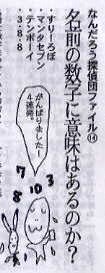 なんだろう探偵団ファイル⑭
名前の数字に意味はあるのか？
・すりーろぼ
・マンタセブン
・テンボーイ
・3・8・8
がんばりました！
4連発。
7
10
3
8